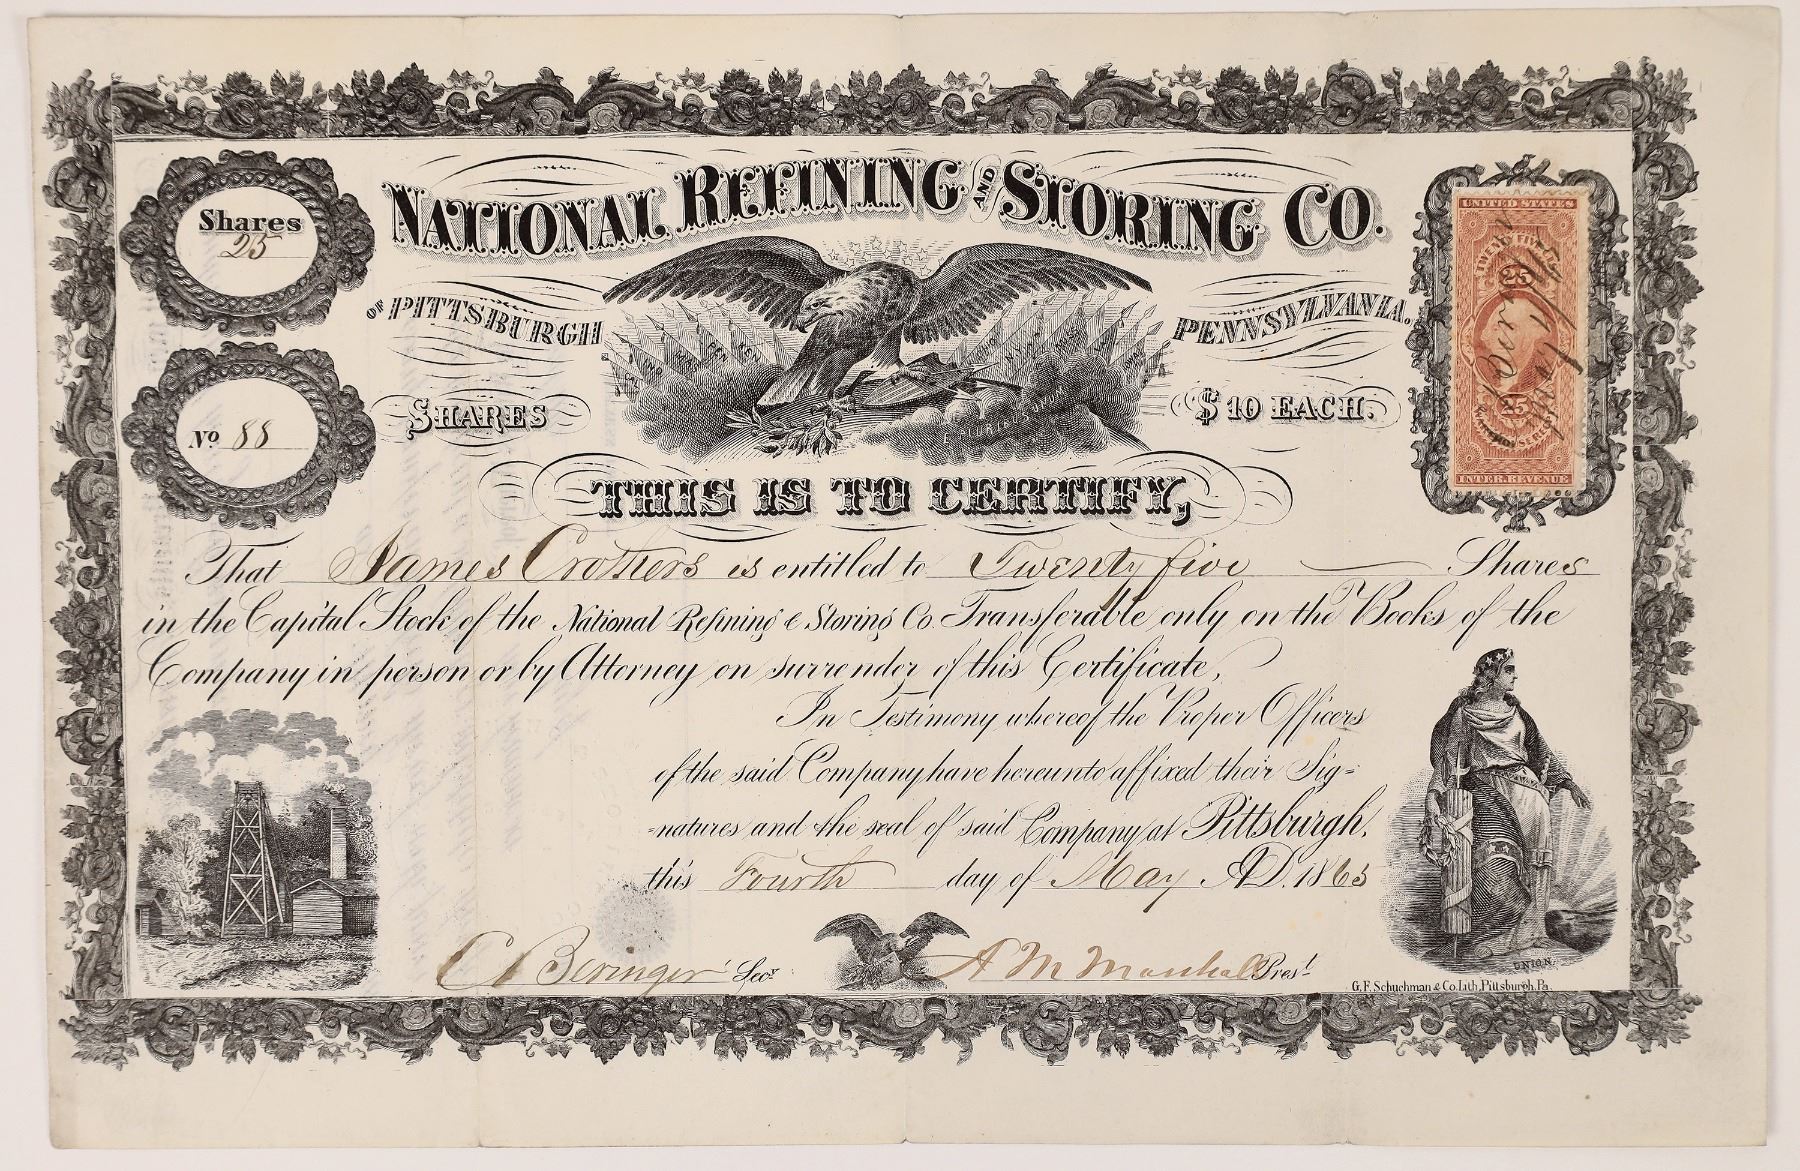 NATIONAL REFINING AND STORING CO.
OF PITTSBURGH PENNSYLVANIA.
Shares
25
No 88
SHARES $10 EACH.
E PLURIBUS UNUM
UNITED STATES
TWENTY FIVE
25
25
INTER. REVENUE
May 4/65
THIS IS TO CERTIFY,
That James Crothers is entitled to Twenty five Shares
in the Capital Stock of the National Refining & Storing Co. Transferable only on the Books of the
Company in person or by Attorney on surrender of this Certificate,
In Testimony whereof the Proper Officers
of the said Company have hereunto affixed their Sig=
=natures and the seal of said Company at Pittsburgh,
this Fourth day of May A.D. 1865
C Beringer Secy
A M Marshall Prest
UNION.
G.F. Schuchman & Co. Lith, Pittsburgh, Pa.